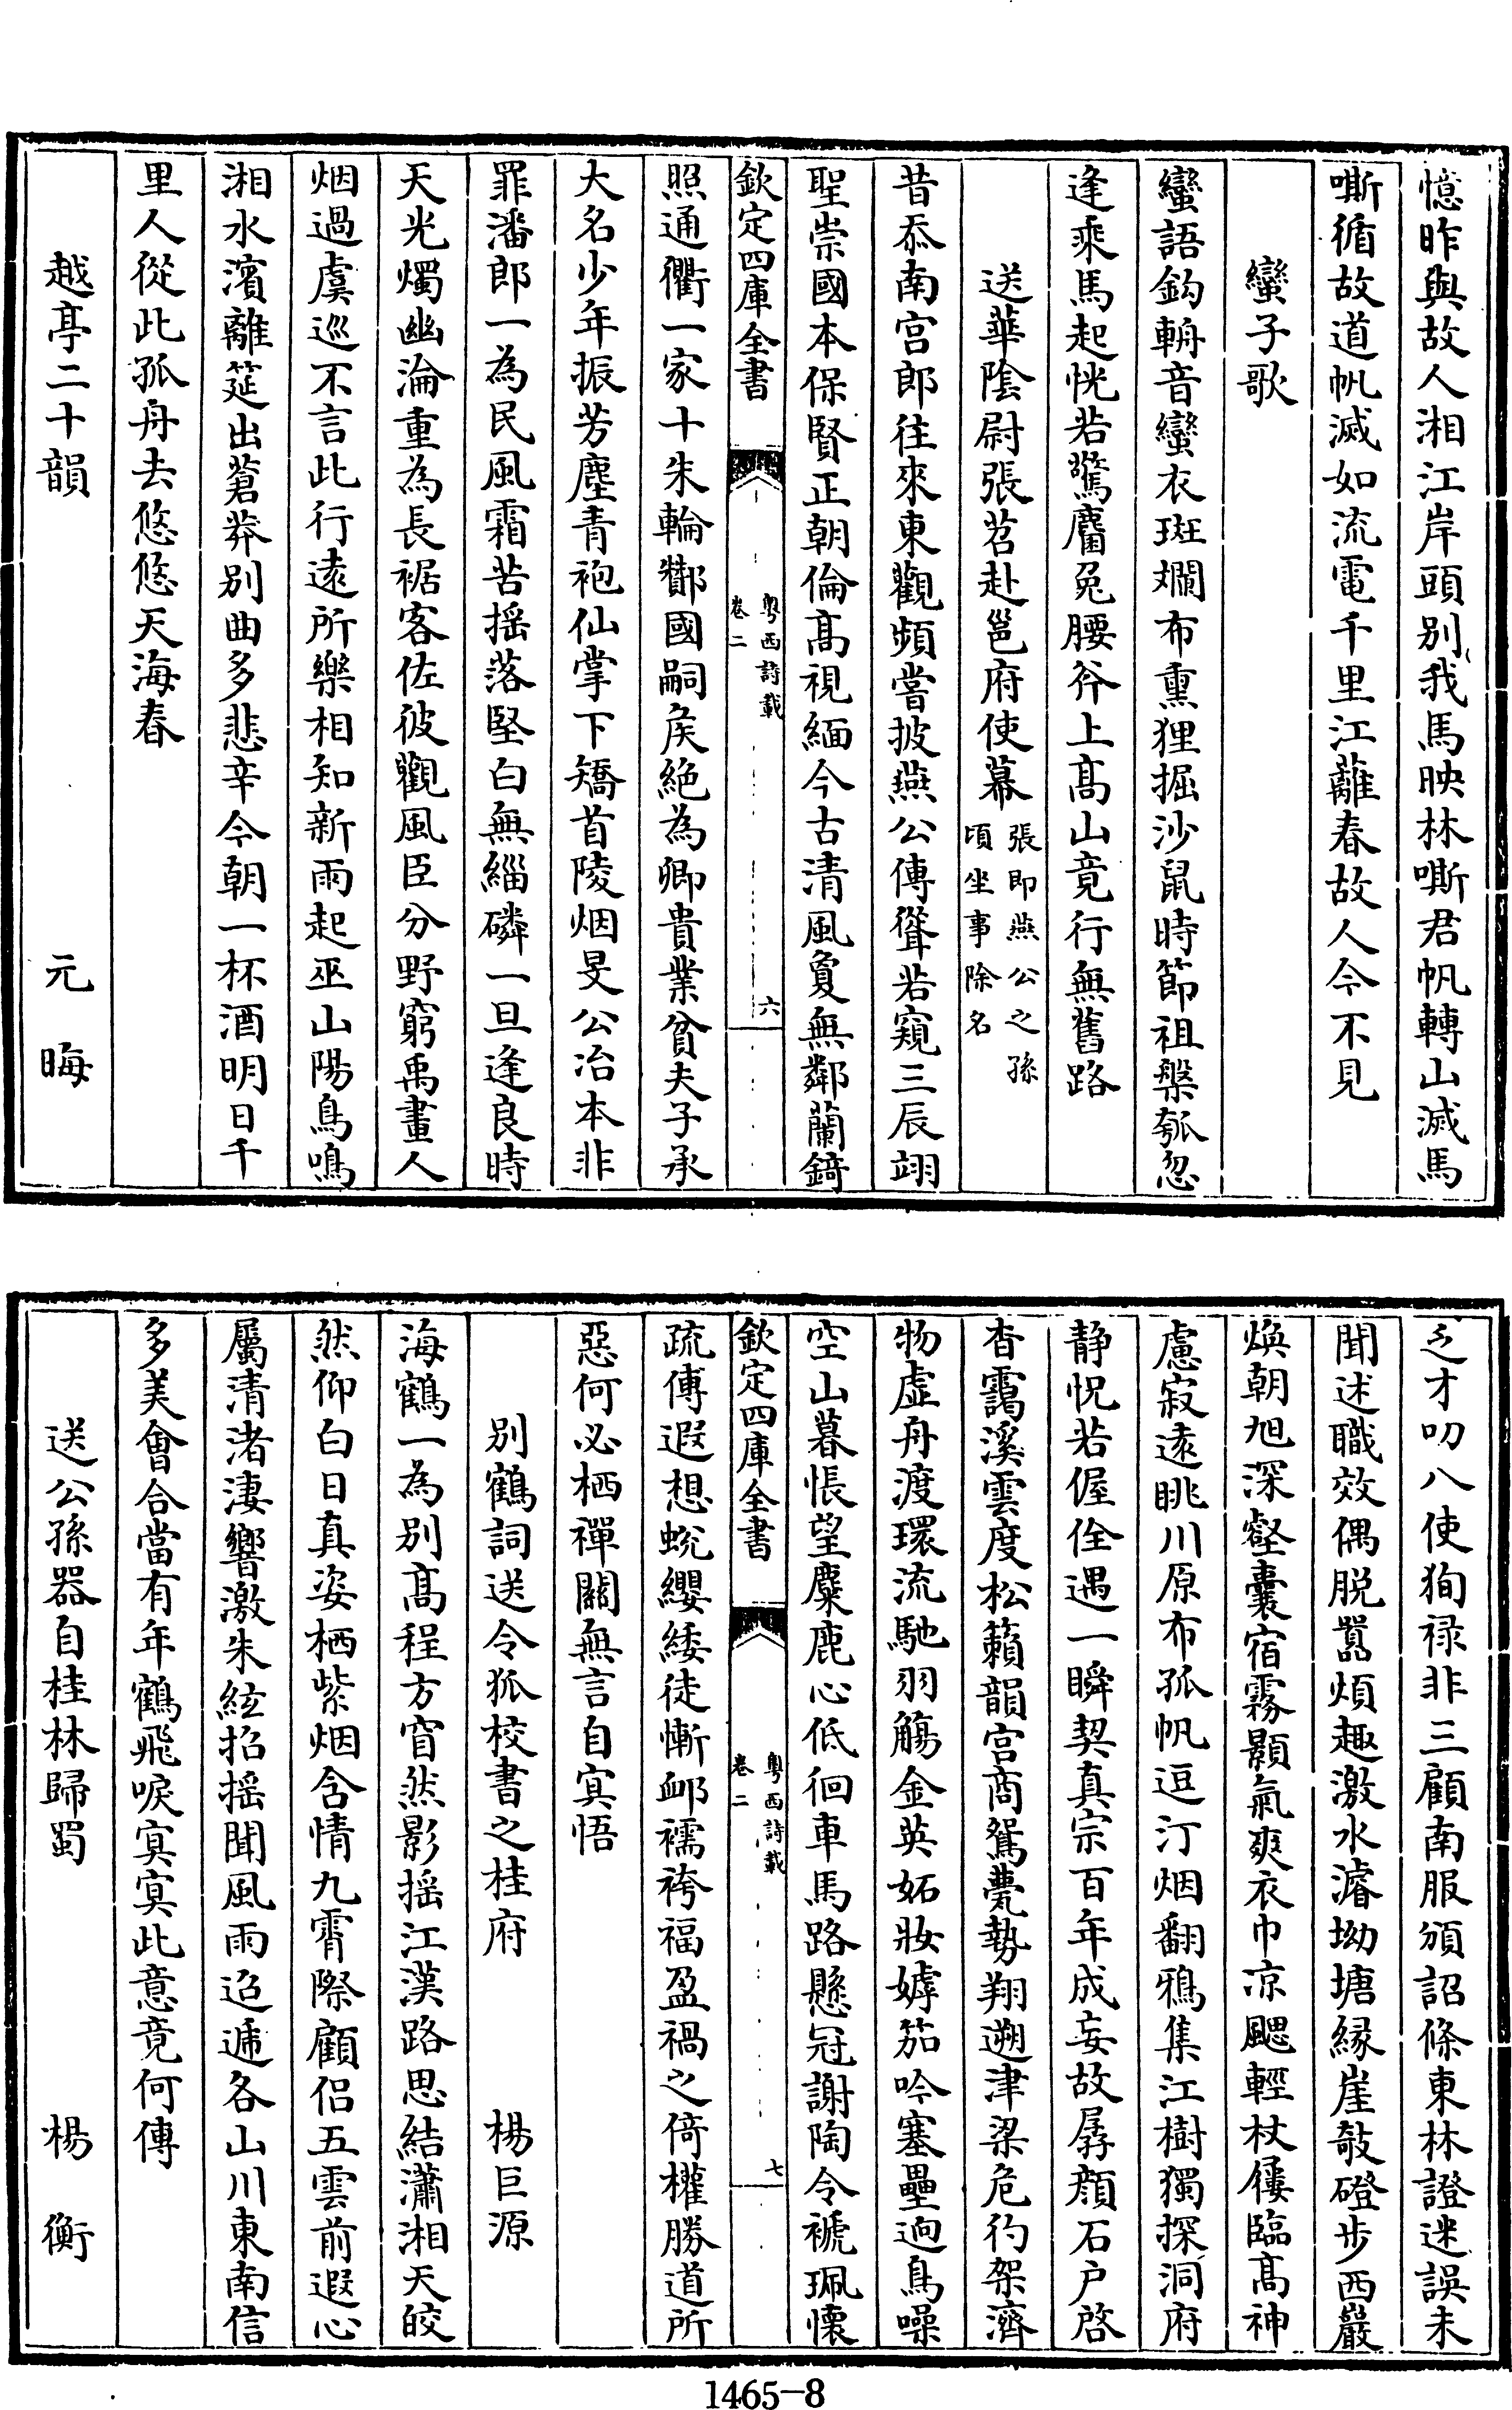 憶昨與故人湘江岸頭别我馬映林嘶君帆轉山滅馬
嘶循故道帆滅如流電千里江蘺春故人今不見
蠻子歌
蠻語鈎輈音蠻衣斑斕布熏狸掘沙鼠時節祖槃瓠忽
逢乘馬起恍若驚麏兔腰斧上髙山竟行無舊路
送華陰尉張苕赴邕府使幕張即燕公之孫
頃坐事除名
昔忝南宫郎往來東觀頻嘗披燕公傳聳若窺三辰翊
聖崇國本保賢正朝倫髙視緬今古清風敻無鄰蘭錡
欽定四庫全書
粤西詩載
卷二
六
照通衢一家十朱輪酇國嗣矦絶為卿貴業貧夫子承
大名少年振芳塵青袍仙掌下矯首陵烟旻公冶本非
罪潘郎一為民風霜苦揺落堅白無緇磷一旦逢良時
天光燭幽淪重為長裾客佐彼觀風臣分野窮禹畫人
烟過虞巡不言此行逺所樂相知新雨起巫山陽鳥鳴
湘水濱離筵出蒼莽别曲多悲辛今朝一杯酒明日千
里人從此孤舟去悠悠天海春
越亭二十韻 元晦
乏才叨八使狥禄非三顧南服頒詔條東林證迷誤未
聞述職效偶脱嚚煩趣激水濬坳塘縁崖敧磴步西巖
煥朝旭深壑囊宿霧顥氣爽衣巾凉颸輕杖屨臨髙神
慮寂逺眺川原布孤帆逗汀烟翻鴉集江樹獨探洞府
静怳若偓佺遇一瞬契真宗百年成妄故孱顔石户啓
杳靄溪雲度松籟韻宫商鴛甍勢翔遡津梁危彴架濟
物虚舟渡環流馳羽觴金英妬妝嫭笳吟塞壘逈鳥噪
空山暮悵望麋鹿心低徊車馬路懸冠謝陶令褫珮懷
欽定四庫全書
粤西詩載
卷二
七
疏傅遐想蛻纓緌徒慚䘏襦袴福盈禍之倚權勝道所
惡何必栖禪關無言自寘悟
别鶴詞送令狐校書之桂府 楊巨源
海鶴一為别髙程方窅然影揺江漢路思結瀟湘天皎
然仰白日真姿栖紫烟含情九霄際顧侣五雲前遐心
屬清渚淒響激朱絃招揺聞風雨迢遞各山川東南信
多美會合當有年鶴飛唳寘寘此意竟何傳
送公孫器自桂林歸蜀 楊衡
1465-8